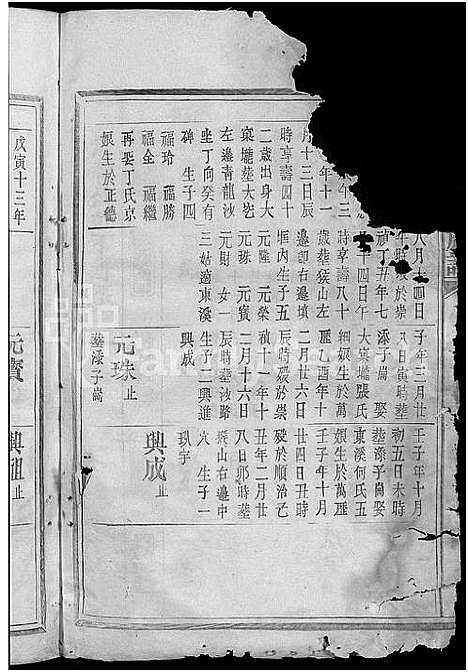 月十三日辰
時享壽四十
二歲出身大
壠葬大塋
左邊青龍沙
坐丁向癸有
碑 生子四
福玲 福勝
福全 福繼
再娶丁氏京
娘生於正德
八月十四日
時歿於崇
禎丁丑年七
二十四日午
時享壽八十
歲葬猴山左
邊卸右邊墳
垢内生子五
元隆 元榮
元珠 元寳
元財 女一
三姑適東溪
子年三月廿
八日寅時葬
漆子崗 娶
大窠壠張氏
細娘生於萬
曆己酉年十
二月廿六日
辰時歿於崇
禎十一年十
二月十六日
辰時葬沙路
生子二興進
興成
元珠止
葬漆子崗
壬子年十月
初五日未時
葬漆子崗娶
東溪何氏五
娘生於萬曆
壬子年十月
廿四日丑時
歿於順治乙
丑年二月廿
八日卯時葬
猴山右邊中
穴 生子一
興成止
玑宇
戊寅十三年
元寳
興祖止